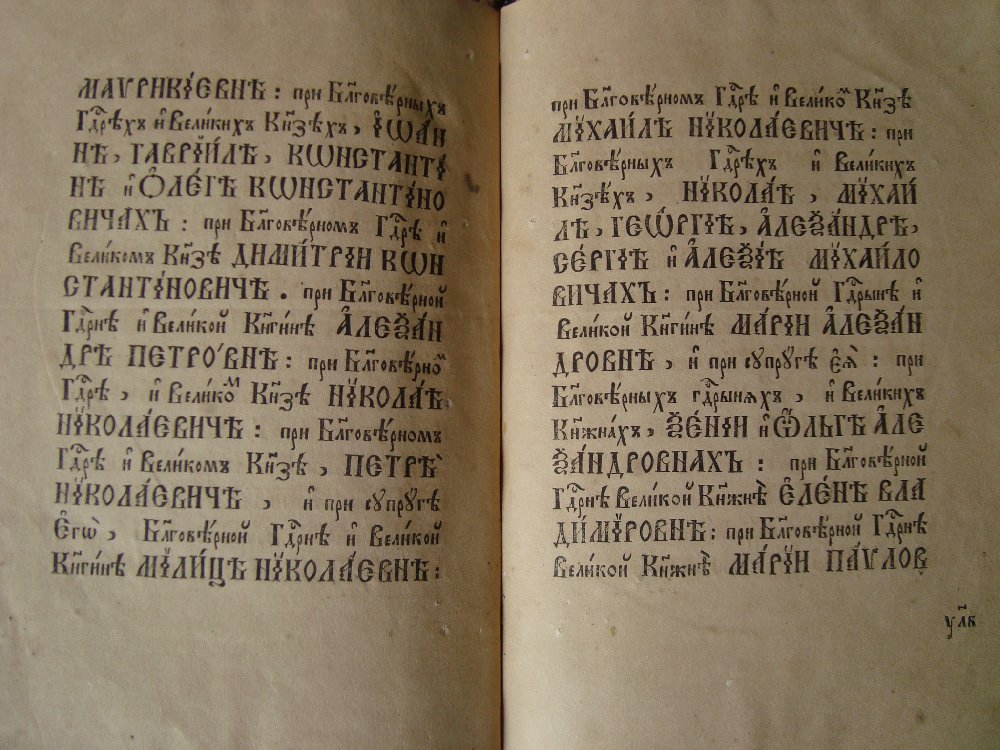 МАѴРИКІЕВНѢ : при Бл҃говѣ́рныхъ
Гдⷭ҇рѣхъ и҆ Вели́кихъ Кн҃зѣхъ, І҆ѠА́Н
НѢ, ГАВРІИ́ЛѢ, КѠНСТАНТІ́
НѢ и҆ Ѻ҆ЛЕ́ГѢ КѠНСТАНТІ́НО
ВИЧАХЪ : при Бл҃говѣ́рномъ Гдⷭ҇рѣ и҆
Вели́комъ Кн҃зѣ ДИМИ́ТРІИ КѠН
СТАНТІ́НОВИЧѢ . при Бл҃говѣ́рной
Гдⷭ҇рнѣ и҆ Вели́кой Кн҃ги́нѣ А҆ЛЕѮА́Н
ДРѢ ПЕТРО́ВНѢ : при Бл҃говѣ́рноⷨ
Гдⷭ҇рѣ, и҆ Вели́коⷨ Кн҃зѣ НІКОЛА́Ѣ
НІКОЛА́ЕВИЧѢ : при Бл҃говѣ́рномъ
Гдⷭ҇рѣ и҆ Вели́комъ Кн҃зѣ, ПЕТРѢ̀
НІКОЛА́ЕВИЧѢ , и҆ при сꙋпрꙋ́гѣ
Е҆гѡ̀, Бл҃говѣ́рной Гдⷭ҇рнѣ и҆ Вели́кой
Кн҃ги́нѣ МІЛИ́ЦѢ НІКОЛА́ЕВНѢ :
при Бл҃говѣ́рномъ Гдⷭ҇рѣ и҆ Вели́коⷨ Кн҃зѣ
МІХАИ́ЛѢ НІКОЛА́ЕВИЧѢ : при
Бл҃говѣ́рныхъ Гдⷭ҇рѣхъ и҆ Вели́кихъ
Кн҃зѣхъ , НІКОЛА́Ѣ , МІХАИ́
ЛѢ, ГЕѠ́РГІѢ, А҆ЛЕѮА́НДРѢ,
СЕ́РГІѢ и҆ А҆ЛЕѮІ́Ѣ МІХА́ЙЛО
ВИЧАХЪ : при Бл҃говѣ́рной Гдⷭ҇рынѣ и҆
Вели́кой Кн҃ги́нѣ МАРІ́И А҆ЛЕѮА́Н
ДРОВНѢ, и҆ при сꙋпрꙋ́гѣ е҆ѧ̀ : при
Бл҃говѣ́рныхъ гдⷭ҇рыняхъ , и҆ Вели́кихъ
Кн҃жна́хъ , ѮЕ́НІИ и҆ Ѻ҆́ЛЬГѢ А҆ЛЕ
ѮА́НДРОВНАХЪ : при Бл҃говѣ́рной
Гдⷭ҇рнѣ Вели́кой Кн҃жнѣ̀ Е҆ЛЕ́НѢ ВЛА
ДИ́МІРОВНѢ : при Бл҃говѣ́рной Гдⷭ҇рнѣ
Вели́кой Кн҃жнѣ̀ МАРІ́И ПА́ѴЛОВ